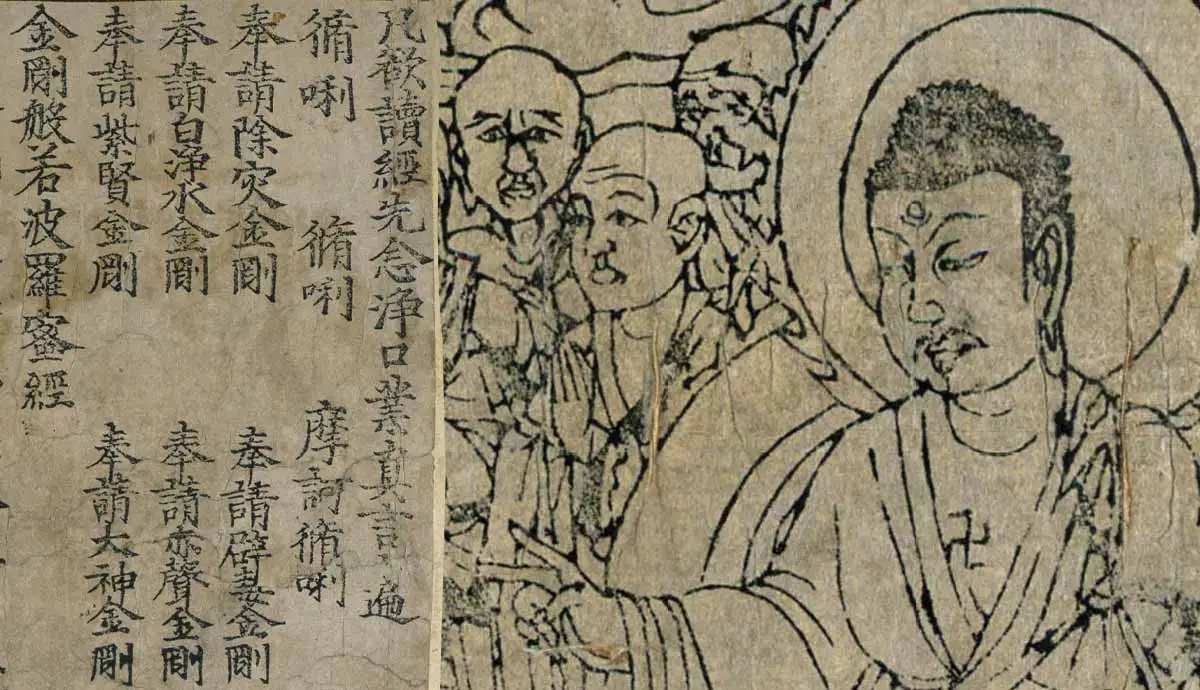 凡欲讀經先念浄口業真言一遍
脩唎 脩唎 摩訶脩唎
奉請除灾金剛 奉請辟毒金剛
奉請白浄水金剛 奉請赤聲金剛
奉請紫賢金剛 奉請大神金剛
金剛般若波羅蜜經